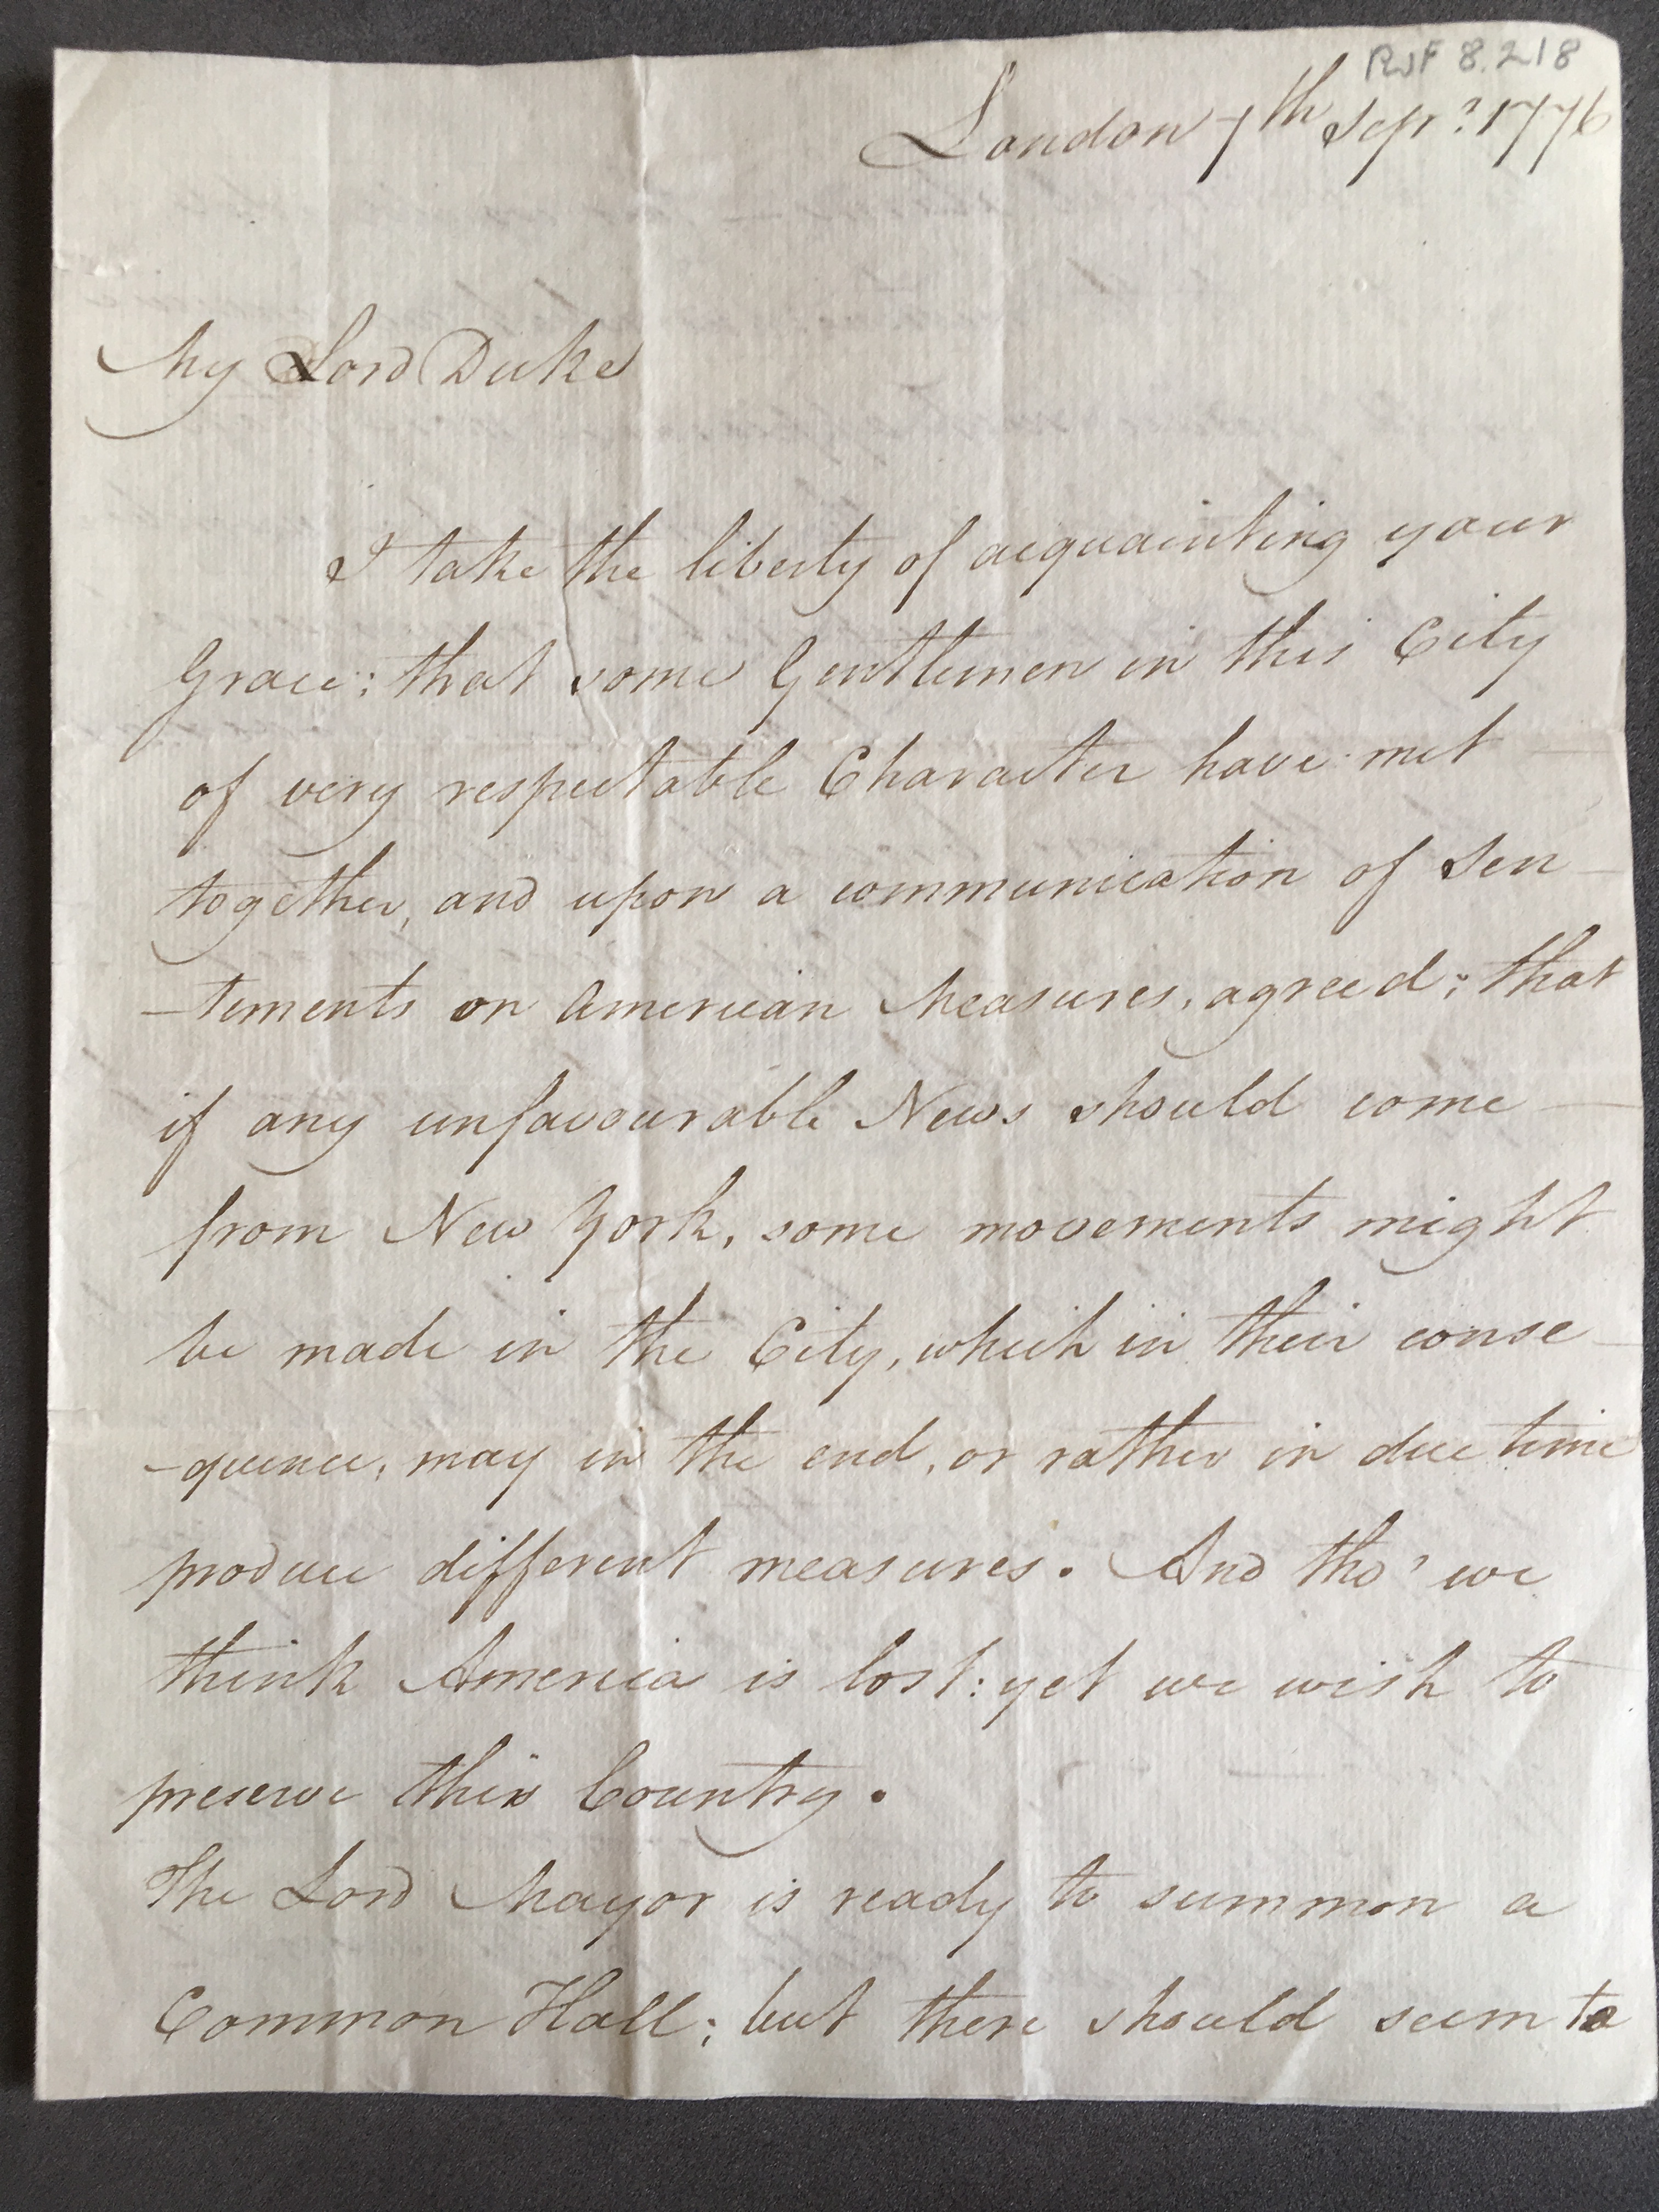 PwF 8.218
London 7th Sepr. 1776
My Lord Duke
I take the liberty of acquainting your
Grace; that some Gentlemen in this City
of very respectable Character have met
together, and upon a communication of Sen
-tements on American Measures, agreed; that
if any unfavourable News should come
from New York, some movements might
be made in the City, which in their conse
-quence, may in the end, or rather in due time
produce different measures. And tho' we
think America is lost: yet we wish to
preserve this Country.
The Lord Mayor is ready to summon a
Common Hall; but there should seem to